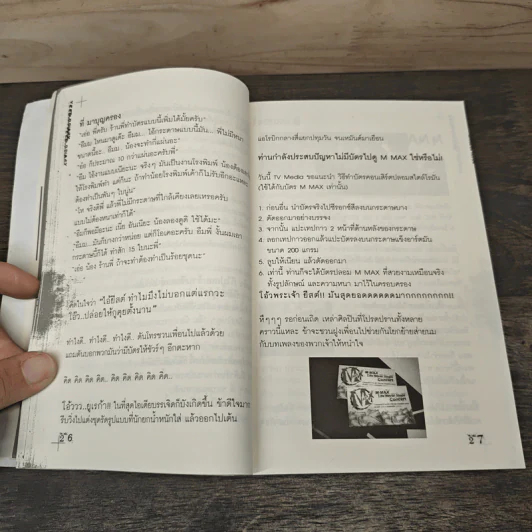 ที่ มาบุญครอง
"เอ่อ พี่ครับ ร้านพี่ทำบัตรแบบนี้เพิ่มได้มั้ยครับ"
"อืมม ไหนมาดูเด๊ะ อืมม... ใช้กระดาษแบบนี้มัน.... พี่ไม่มีหนา
ขนาดนี้อะ.. อืมม.. น้องจะทำกี่แผ่นอะ"
"อ๋อ ก็ประมาณ 10 กว่าแผ่นอะครับพี่"
"อืม ใช้งานแบบเนี้ยะนะ จริงๆ มันเป็นงานโรงพิมพ์ น้องต้อง
ให้โรงพิมพ์ทำ แต่ก็นะ ถ้าทำน้อยโรงพิมพ์เค้าก็ไม่รับอีกอะ
ต้องทำเป็นพันๆ ใบนู่น"
"โห จริงดิพี่ แล้วพี่ไม่มีกระดาษที่ใกล้เคียงเลยเหรอครับ
แบบไม่ต้องหนาเท่าก็ได้"
"อืมก็พอมีอะนะ เนี่ย อันเนี่ยะ น้องลองดูดิ ใช้ได้มะ"
"อืมม...มันก็บางกว่าหน่อย แต่ก็โอเคอะครับ อืมพี่ งั้นผมเอา
กระดาษนี้ก็ได้ ทำสัก 15 ใบนะพี่"
"เอ่อ น้อง ร้านพี่ ถ้าจะทำต้องทำเป็นร้อยชุดนะ"
คิดในใจว่า "ไอ้ยีสต์ ทำไมมึงไม่บอกแต่แรกวะ
โธ่ว...ปล่อยให้กูคุยตั้งนาน"
ทำไงดี.. ทำไงดี.. ทำไงดี.. ดันโทรชวนเพื่อนไปแล้วด้วย
แถมดันบอกพวกมันว่ามีบัตรให้ชัวร์ๆ อีกตะหาก
คิด คิด คิด คิด.. คิด คิด คิด คิด คิด..
โอ้ววว..ยูเรก้าส ในที่สุดไอเดียบรรเจิดก็บังเกิดขึ้น ข้าดีใจมาก
รีบวิ่งไปแต่งชุดรัดรูปแบบที่นักยกน้ำหนักใส่ แล้วออกไปเต้น
26
แอโรบิกกลางสี่แยกปทุมวัน จนเหม่งตีมาเยือน
ท่านกำลังประสบปัญหาไม่มีบัตรไปดู M MAX ใช่หรือไม่!
วันนี้ TV Media ขอแนะนำ วิธีทำบัตรคอนเสิร์ตปลอมสไตล์อีโรมัน
(ใช้ได้กับบัตร M MAX เท่านั้น)
1. ก่อนอื่น นำบัตรจริงไปซีรอกซ์สีลงบนกระดาษบาง
2. ตัดออกมาอย่างบรรจง
3. จากนั้น แปะเทปกาว 2 หน้าที่ด้านหลังของกระดาษ
4. ลอกเทปกาวออกแล้วแปะบัตรลงบนกระดาษแข็งอาร์ตมัน
ขนาด 200 แกรม
5. ลูบให้เนียน แล้วตัดออกมา
6. เท่านี้ ท่านก็จะได้บัตรปลอม M MAX ที่สวยงามเหมือนจริง
ทั้งรูปลักษณ์ และความหนา มาไว้ในครอบครอง
โอ้วพระเจ้า ยีสต์!! มันสุดยอดดดดดดมากกกกกกกกกก!!
หึๆๆๆๆ รอก่อนเถิด เหล่าศิลปินที่โปรดปรานทั้งหลาย
คราวนี้แหละ ข้าจะชวนฝูงเพื่อนไปช่วยกันโยกย้ายส่ายนม
กับบทเพลงของพวกเจ้าให้หนำใจ
M-MAX
M-MAX
27